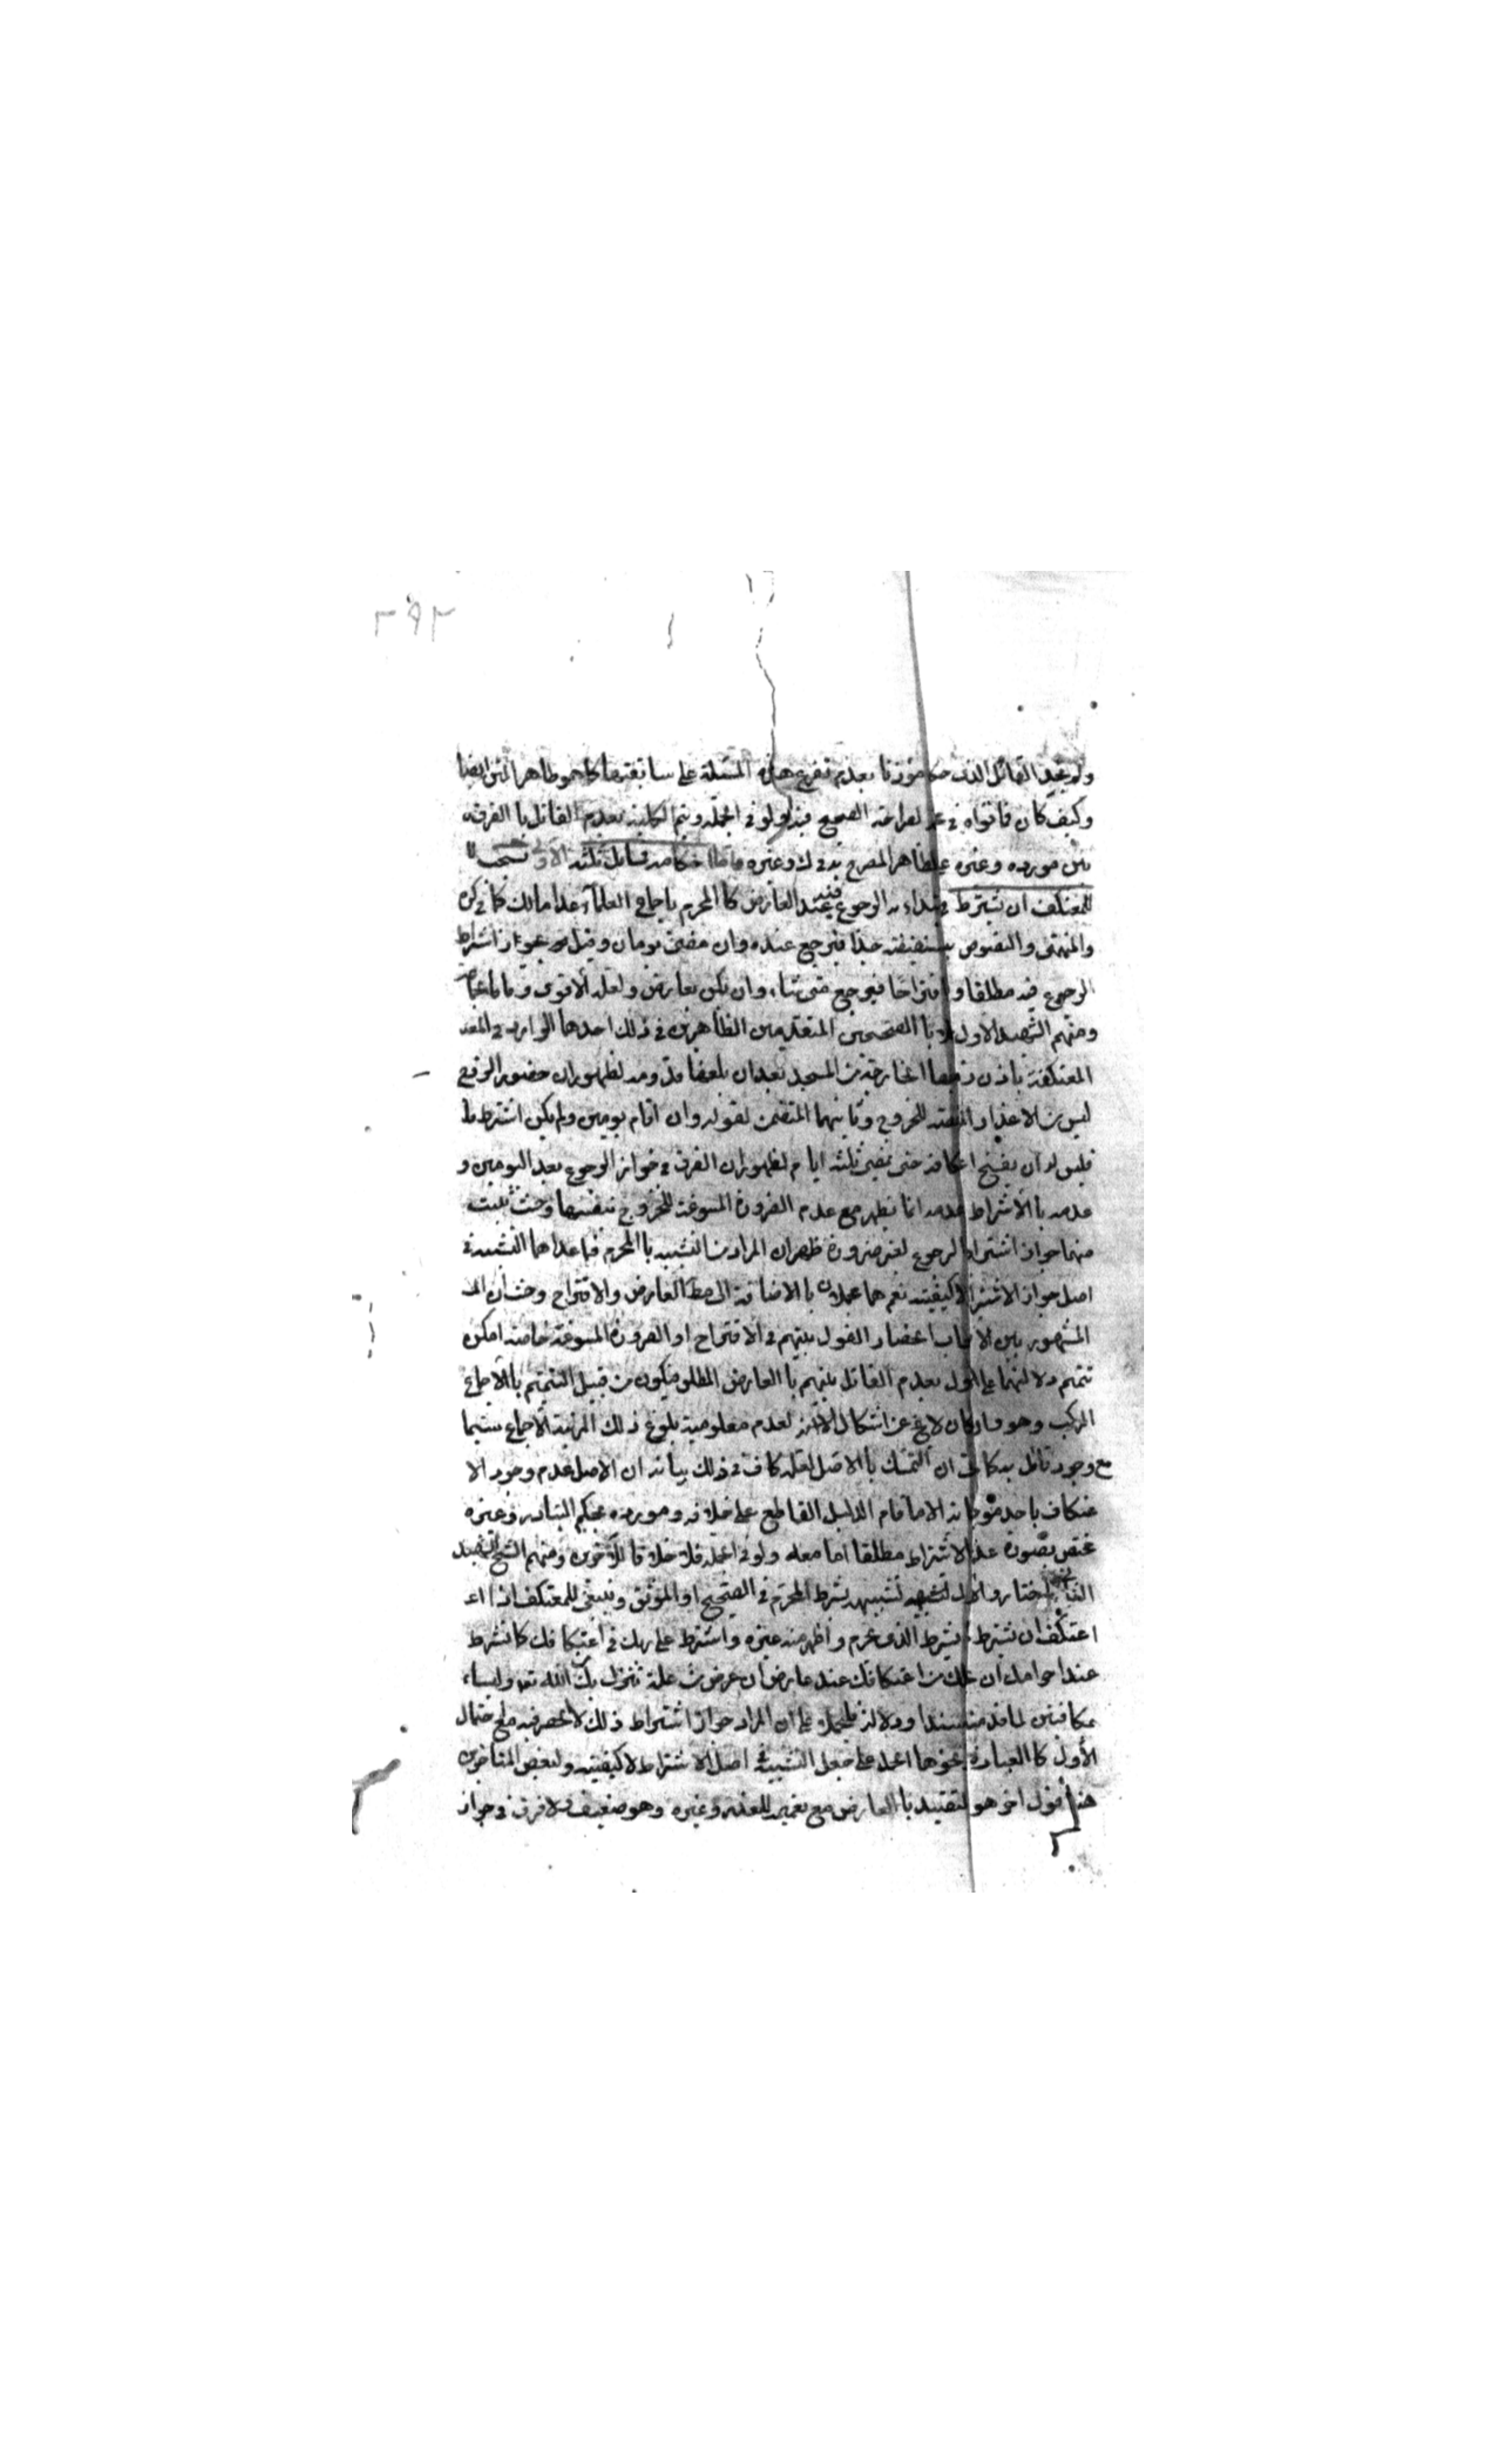 ٢٩٢
القائل الذى بعدم تفريع هذه المسئلة على سابقتها كما هو ظاهر المتن ايضا
وكيف كان فاتواه فى الصحيح فيه ولو فى الجملة ويتم الكلية بعدم القائل با الفرق
بين مورده وغيره المصرح به وغيره واما احكامه فمسائل ثلثة الاولى يستحب
للمعتكف ان يشترط فى ابتداءه الرجوع فيه عند العارض كا المحرم باجماع العلماء عدا مالك كما فى كره
والمنتهى والنصوص مستفيضة جدا فيرجع عنده وان مضى يومان وقيل يجوز اشتراط
الرجوع فيه مطلقا واقتراحا فيرجع متى شاء وان لم يكن لعارض ولعله الاقوى وفاقا لجماعة
ومنهم الشهيد الاول با الصحيحين المتقدمين الظاهرين فى ذلك احدهما الوارد فى
المعتكفة باذن زوجها الخارجة من المسجد بعد ان بلغها قدومه لظهور ان حضور الزوج
ليس من الاعذار للخروج وثانيهما المتضمن لقوله وان اقام يومين ولم يكن اشترط
فليس له ان يفسخ اعتكافه حتى يمضى ثلثة ايام لظهور ان الفرق فى جواز الرجوع بعد اليومين و
عدمه با الاشتراط وعدمه انما يظهر مع عدم الضرورة المسوغة للخروج بنفسها وحيث ثبت
منهما جواز اشتراط الرجوع لغير ضرورة ظهر ان المراد من التشبيه با المحرم فيما عداهما التشبيه فى
اصل جواز الاشتراط لا كيفيته نعم هما مجملان با الاضافة الى مط العارض والاقتراح وحيث ان
المشهور بين الاصحاب انحصار القول بينهم فى الاقتراح او الضرورة المسوغة خاصة امكن
تتميم دلالتهما على الاول بعدم القائل بينهم با العارض المطلق فيكون من قبيل التتميم با الاجماع
المركب وهو وان كان لا يخ عن اشكال لعدم معلومية بلوغ ذلك المرتبة الاجماع سيما
مع وجود قائل به كما ان التمسك با الاصل لعله كاف فى ذلك بيانه ان الاصل عدم وجود الا
عتكاف باحد موجباته الا ما قام الدليل القاطع على خلافه ومورده بحكم التبادر وغيره
مختص بصورة عدم الاشتراط مطلقا اما معه ولو فى الجملة فلا خلافا للاخرين ومنهم الشيخ الشهيد
الثانى فاختاروا الاول لتشبيهه بشرط المحرم فى الصحيح او الموثق وينبغى للمعتكف اذا
اعتكف ان يشترط كما يشترط الذى يحرم واظهر منه غيره واشترط على ربك فى اعتكافك كما تشترط
عند احرامك ان يحلك من اعتكافك عند عارض ان عرض من علة تنزل بك من الله تعالى وليسا
بمكافئين لما قدمنا سندا ودلالة على ان المراد جواز اشتراط ذلك لا الحصر فيه مع احتمال
الاول كا العبارة ونحوها الحمل على جعل التشبيه فى اصل الاشتراط لا كيفيته ولبعض المتاخرين
هنا قول اخر هو التقييد با العارض مع تعميمه للعذر وغيره وهو ضعيف ولا فرق فى جواز